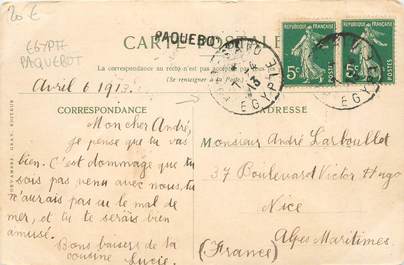 20 €
EGYPTE
PAQUEBOT
CARTE POSTALE
PAQUEBOT
La correspondance au recto n'est pas acceptée par tous les pays
(Se renseigner à la Poste)
REPUBLIQUE FRANÇAISE
REPUBLIQUE FRANÇAISE
5c
POSTES
5c
POSTES
EGYPTE
EGYPTE
Avril 6 1913.
CORRESPONDANCE
ADRESSE
Mon cher André,
je pense que tu vas
bien. C'est dommage que tu
sois pas venu avec nous, tu
n'aurais pas eu le mal de
mer, et tu te serais bien
amusé.
Bons baisers de ta
cousine Lucie.
Monsieur André Larboullet
37 Boulevard Victor Hugo
Nice
Alpes Maritimes.
(France)